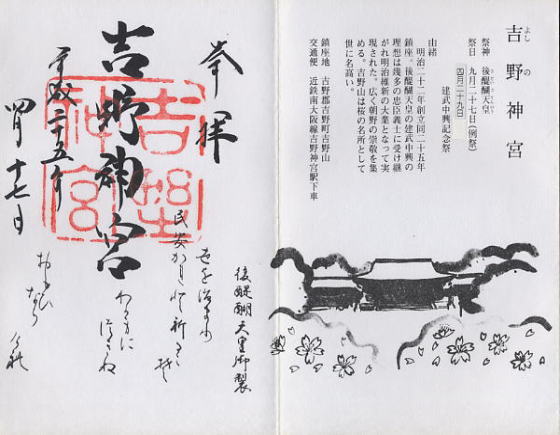 吉野神宮
よしの
祭神 後醍醐天皇
祭日 九月二十七日(例祭)
四月二十九日
建武中興記念祭
由緒
明治二十二年創立同二十五年
鎮座。後醍醐天皇の建武中興の
理想は幾多の忠臣義士に受け継
がれ明治維新の大業となって実
現された。広く朝野の崇敬を集
める。吉野山は桜の名所として
世に名高い。
鎮座地 吉野郡吉野町吉野山
交通便 近鉄南大阪線吉野神宮駅下車
奉拝
吉野神宮
吉野神宮
平成二十五年
四月十七日
後醍醐天皇御製
民安かれと祈るこそ
わか身に
つきぬ
おもひ
なり
けれ